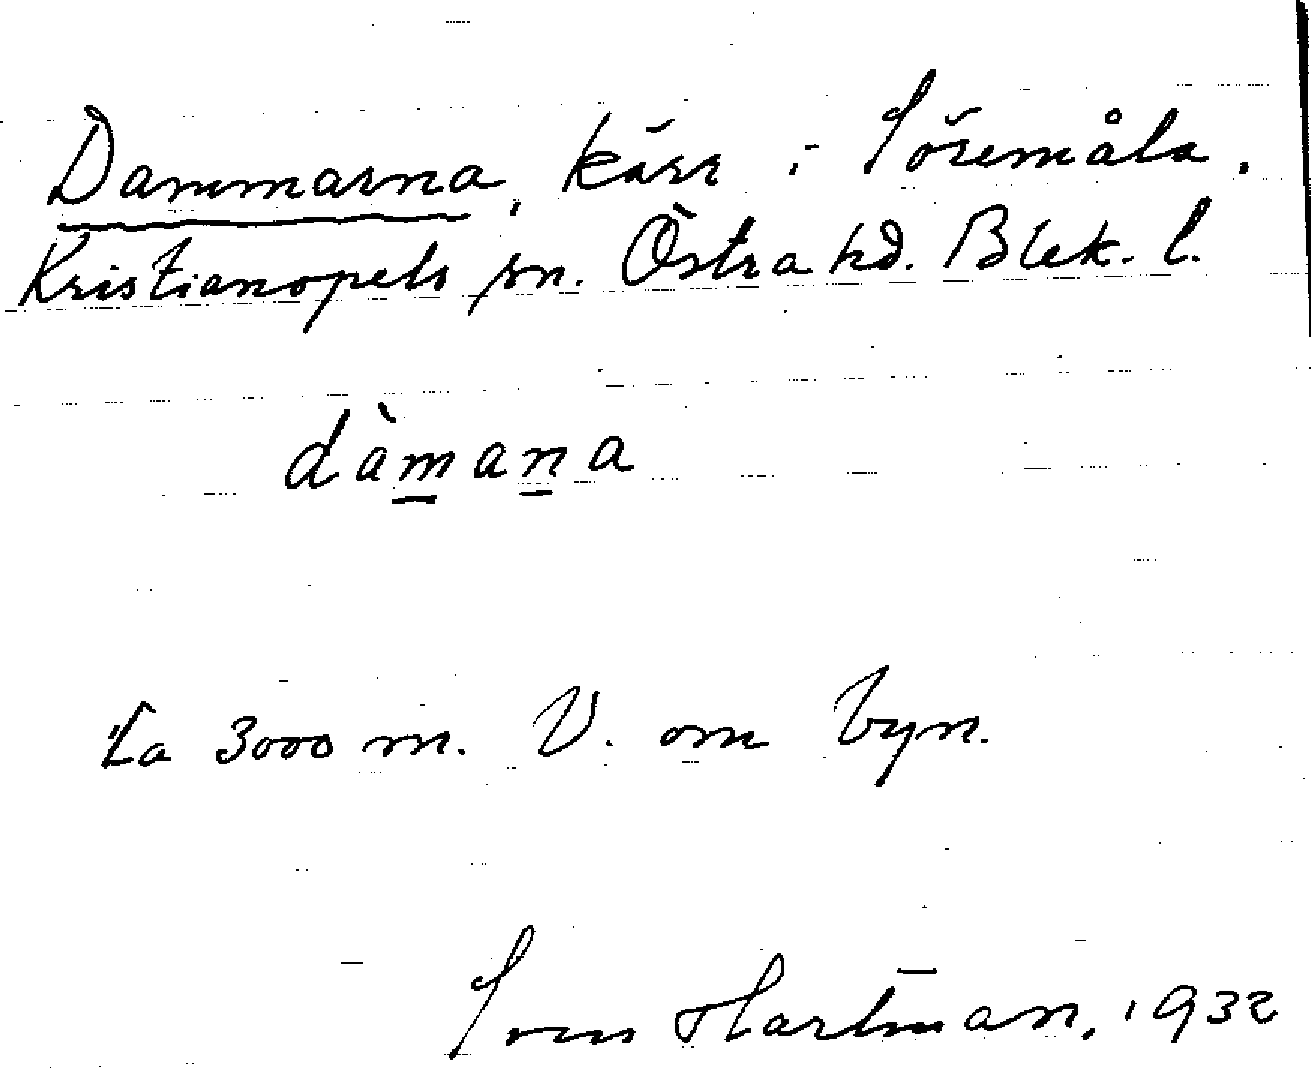 Dammarna, kärr i Söremåla,
Kristianopels sn. Östra hd. Blek. l.
dàmana
Ca 3000 m. V. om byn.
Sven Hartman, 1932